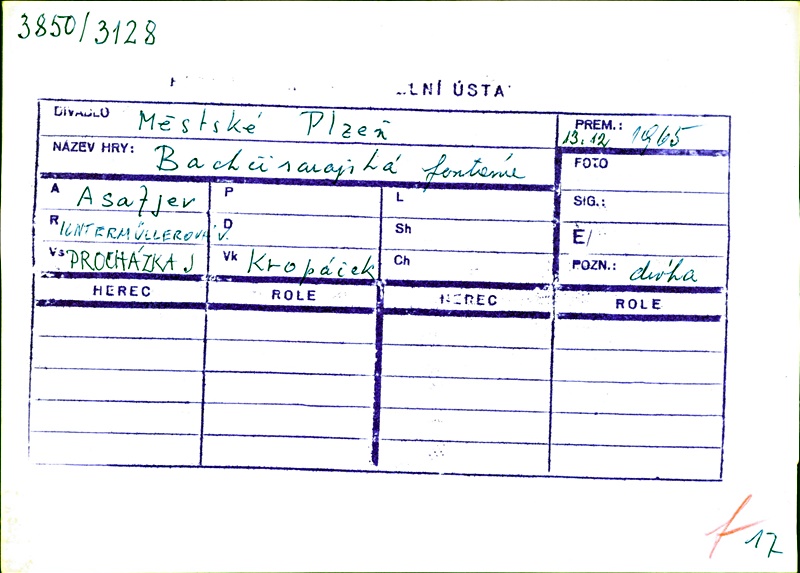 3850/3128
LNÍ ÚSTA
DIVADLO Městské Plzeň PREM.: 13.12 1965
NÁZEV HRY: Bachčisarajská fontána FOTO
A Asafjev P L SIG.:
R UNTERMÜLLEROVÁ V. D Sh Č/
Vs PROCHÁZKA J Vk Kropáček Ch POZN.:
HEREC ROLE HEREC ROLE
17